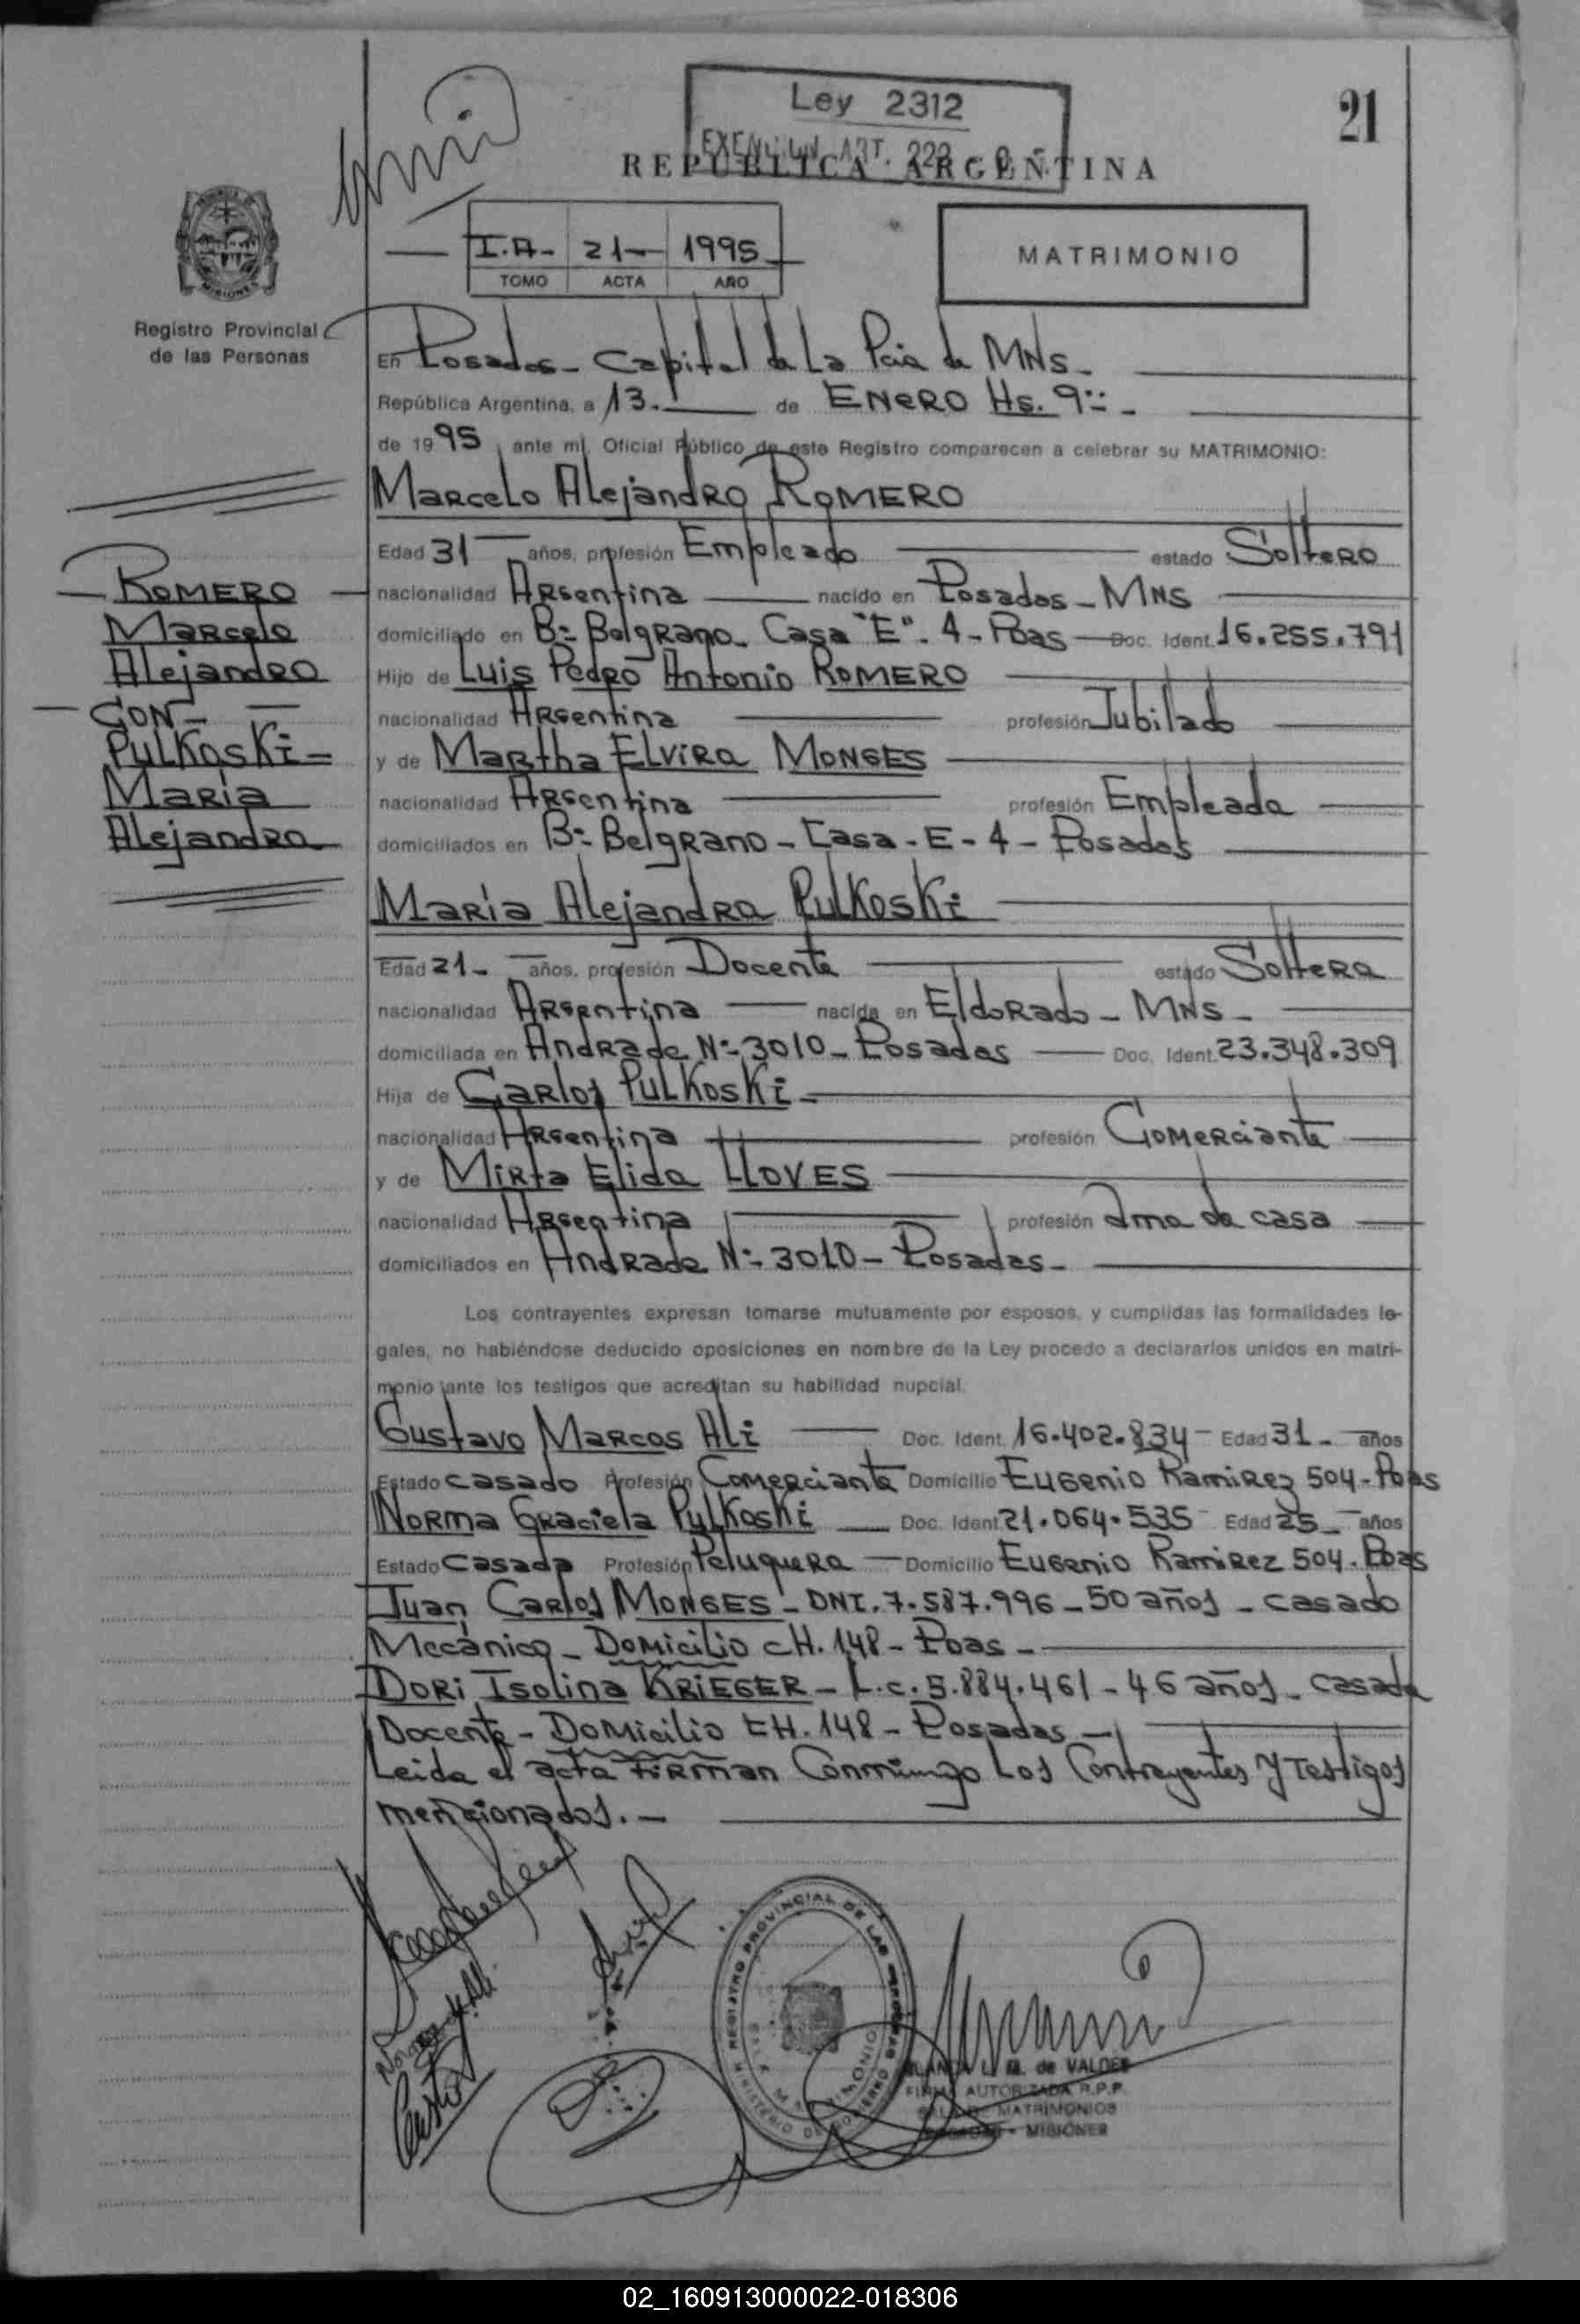 Ley 2312
21
REPUBLICA ARGENTINA
I.A- 21- 1995
TOMO ACTA AÑO
MATRIMONIO
MISIONES
Registro Provincial
de las Personas
En Posadas - Capital de La Pcia de MNS -
República Argentina, a 13.- de ENERO Hs. 9
de 1995, ante mí, Oficial Público de este Registro comparecen a celebrar su MATRIMONIO:
Marcelo Alejandro ROMERO
Edad 31 años, profesión Empleado estado Soltero
nacionalidad Argentina nacido en Posadas - MNS
domiciliado en B- Belgrano - Casa "E" - 4 - Pdas Doc. Ident. 16.255.791
Hijo de Luis Pedro Antonio ROMERO
nacionalidad Argentina profesión Jubilado
y de Martha Elvira MONGES
nacionalidad Argentina profesión Empleada
domiciliados en B- Belgrano - Casa - E - 4 - Posadas
María Alejandra Pulkoski
Edad 21- años, profesión Docente estado Soltera
nacionalidad Argentina nacida en Eldorado - MNS -
domiciliada en Andrade N- 3010 - Posadas Doc. Ident. 23.348.309
Hija de Carlos Pulkoski -
nacionalidad Argentina profesión Comerciante
y de Mirta Elida LLOVES
nacionalidad Argentina profesión Ama de casa
domiciliados en Andrade N- 3010 - Posadas -
Los contrayentes expresan tomarse mutuamente por esposos, y cumplidas las formalidades le-
gales, no habiéndose deducido oposiciones en nombre de la Ley procedo a declararlos unidos en matri-
monio ante los testigos que acreditan su habilidad nupcial.
Gustavo Marcos Ali Doc. Ident. 16.402.834 - Edad 31 - años
Estado casado Profesión Comerciante Domicilio Eugenio Ramirez 504 - Pdas
Norma Graciela Pulkoski Doc. Ident. 21.064.535 Edad 25 - años
Estado casada Profesión Peluquera - Domicilio Eugenio Ramirez 504 . Pdas
Juan Carlos MONGES - DNI. 7.587.996 - 50 años - casado
Mecánico - Domicilio CH. 148 - Pdas -
Dori Isolina KRIEGER - L.c. 5.884.461 - 46 años - casada
Docente - Domicilio CH. 148 - Posadas -
Leida el acta firman Conmigo Los Contrayentes y Testigos
mencionados. -
ROMERO
Marcelo
Alejandro
- CON -
Pulkoski -
María
Alejandra
REGISTRO PROVINCIAL DE LAS PERSONAS
MINISTERIO DE GOBIERNO
SALA MATRIMONIO
BLANCA L. M. de VALDES
FIRMA AUTORIZADA R.P.P.
SALA DE MATRIMONIOS
POSADAS - MISIONES
02_160913000022-018306